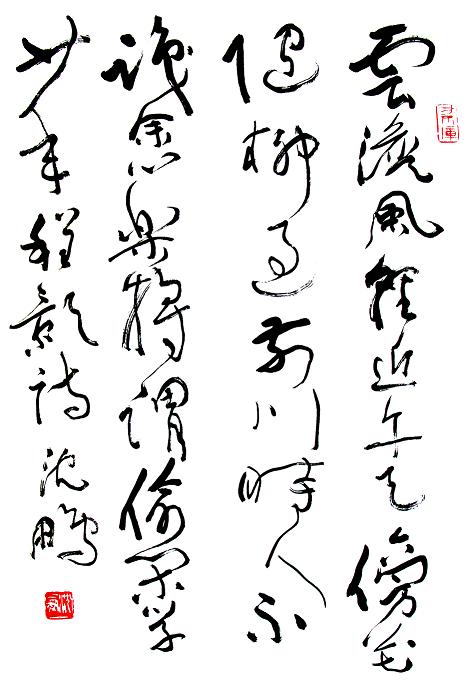 雲淡風輕近午天傍花
随柳過前川時人不
識余心樂將謂偷閑學
少年程顥詩 沈鵬